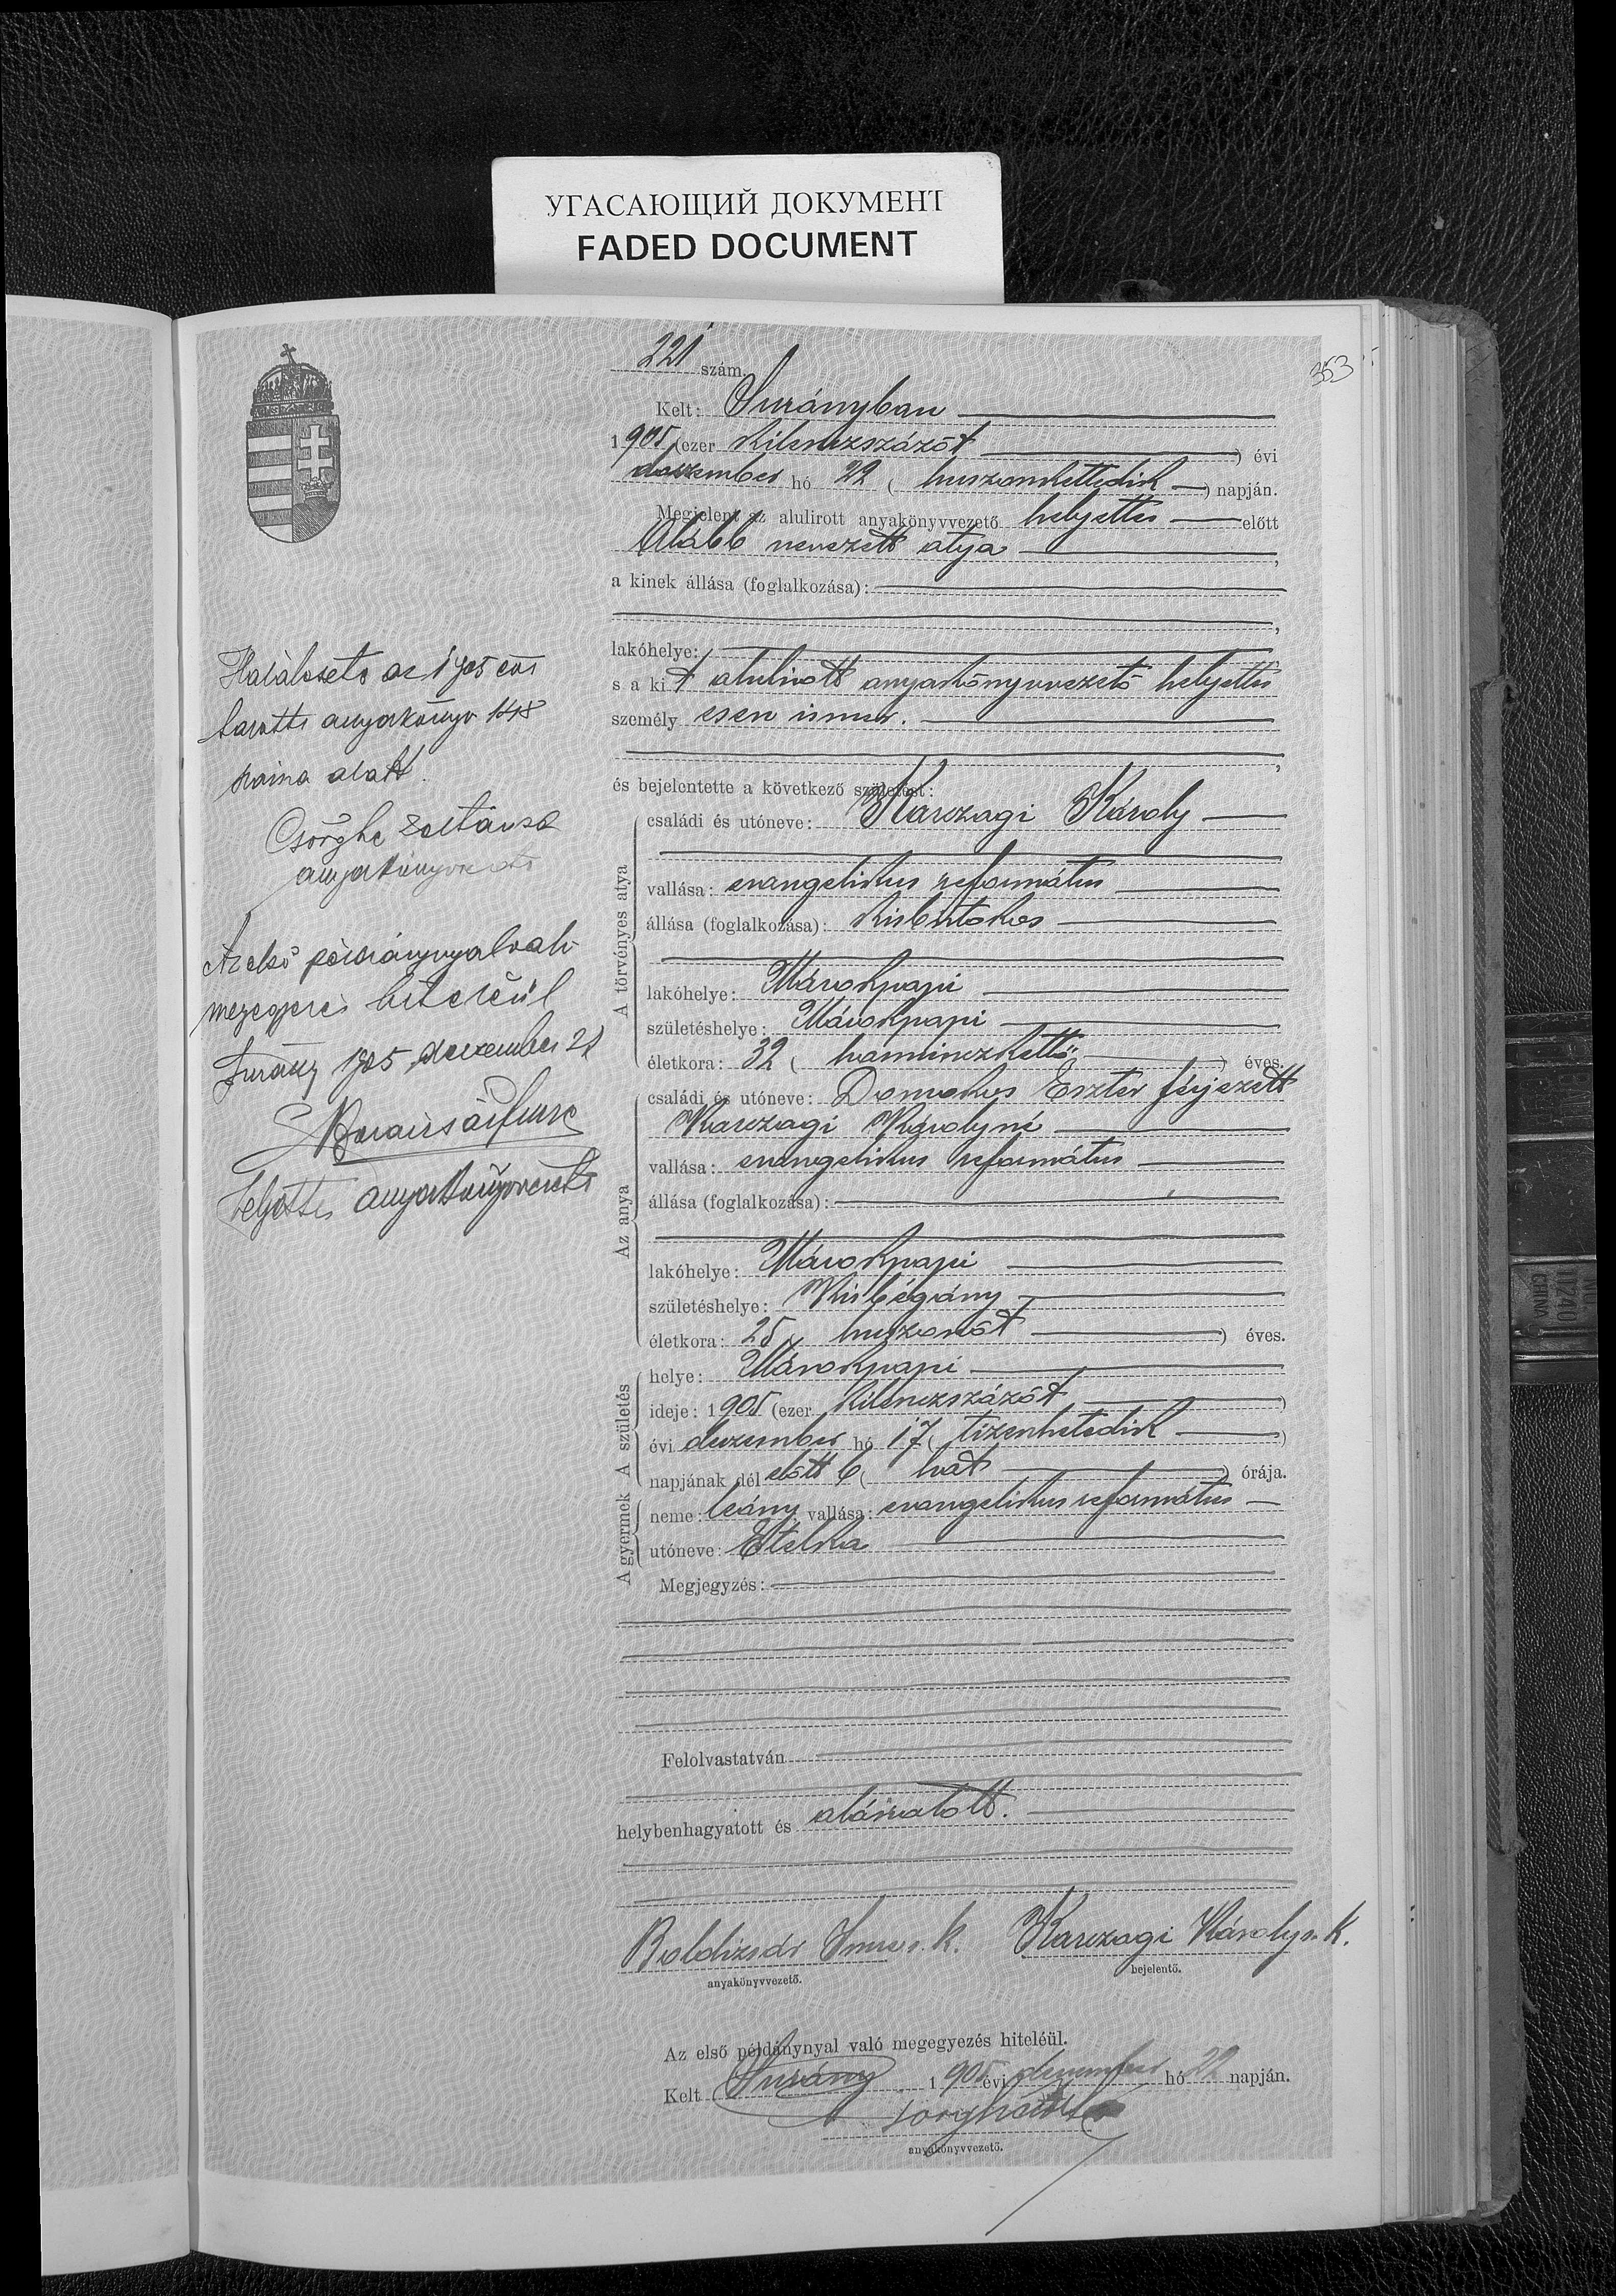 УГАСАЮЩИЙ ДОКУМЕНТ
FADED DOCUMENT
353
221 szám.
Kelt: Surányban
1905 (ezer kilenczszázöt) évi
deczember hó 22 (huszonkettedik) napján.
Megjelent az alulirott anyakönyvvezető helyettes előtt
Alább nevezett atya,
a kinek állása (foglalkozása):
,
lakóhelye:
s a kit alulirott anyakönyvvezető helyettes
személyesen ismer.
,
és bejelentette a következő születést:
A törvényes atya
családi és utóneve: Karczagi Károly
vallása: evangelikus református
állása (foglalkozása): kisbirtokos
lakóhelye: Márokpapi
születéshelye: Márokpapi
életkora: 32 (harminczkettő) éves.
Az anya
családi és utóneve: Domokos Eszter férjezett
Karczagi Károlyné
vallása: evangelikus református
állása (foglalkozása):
lakóhelye: Márokpapi
születéshelye: Kisbégány
életkora: 25 (huszonöt) éves.
A születés
helye: Márokpapi
ideje: 1905 (ezer kilenczszázöt)
évi deczember hó 17 (tizenhetedik)
napjának dél előtt 6 (hat) órája.
A gyermek
neme: leány vallása: evangelikus református
utóneve: Etelka
Megjegyzés:
Felolvastatván
helybenhagyatott és aláiratott.
Boldizsár Imre s. k. Karczagi Károly s. k.
anyakönyvvezető. bejelentő.
Az első példánynyal való megegyezés hiteléül.
Kelt Surány 1905 évi deczember hó 22 napján.
anyakönyvvezető.
Halálesete az 1905 évi
halotti anyakönyv 148
száma alatt.
Csörghe Zoltán
anyakönyvvezető
Az első példánynyal való
megegyezés hiteléül
Surány 1905 deczember
helyettes anyakönyvvezető